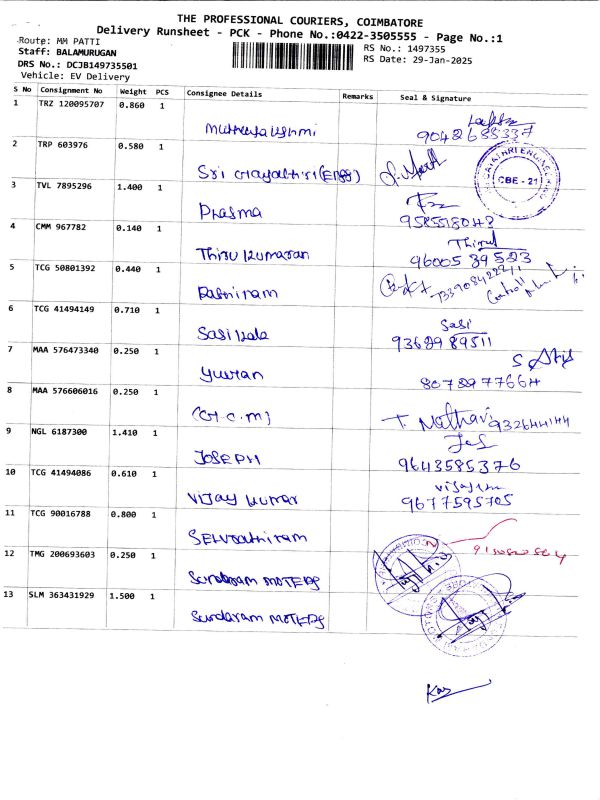 THE PROFESSIONAL COURIERS, COIMBATORE
Delivery Runsheet - PCK - Phone No.:0422-3505555 - Page No.:1
Route: MM PATTI
RS No.: 1497355
Staff: BALAMURUGAN
RS Date: 29-Jan-2025
DRS No.: DCJB149735501
Vehicle: EV Delivery
S No Consignment No Weight PCS Consignee Details Remarks Seal & Signature
1 TRZ 120095707 0.860 1
9042685337
2 TRP 603976 0.580 1
Sri Gayathiri (Engg)
CBE - 21
3 TVL 7895296 1.400 1
Phasma
9585518043
4 CMM 967782 0.140 1
Thiru Kumaran Thirul
9600539523
5 TCG 50801392 0.440 1
6 TCG 41494149 0.710 1
Sasikala Sasi
9362989511
7 MAA 576473340 0.250 1
Yuvran
8072977664
8 MAA 576606016 0.250 1
(G.C.M) T. Nathavi 9326444144
9 NGL 6187300 1.410 1
JOSEPH Jos
9643585376
10 TCG 41494086 0.610 1
Vijay Kumar
9677595705
11 TCG 90016788 0.800 1
Selvarathiram
12 TMG 200693603 0.250 1
Sundaram MOTERS
13 SLM 363431929 1.500 1
Sundaram MOTERS